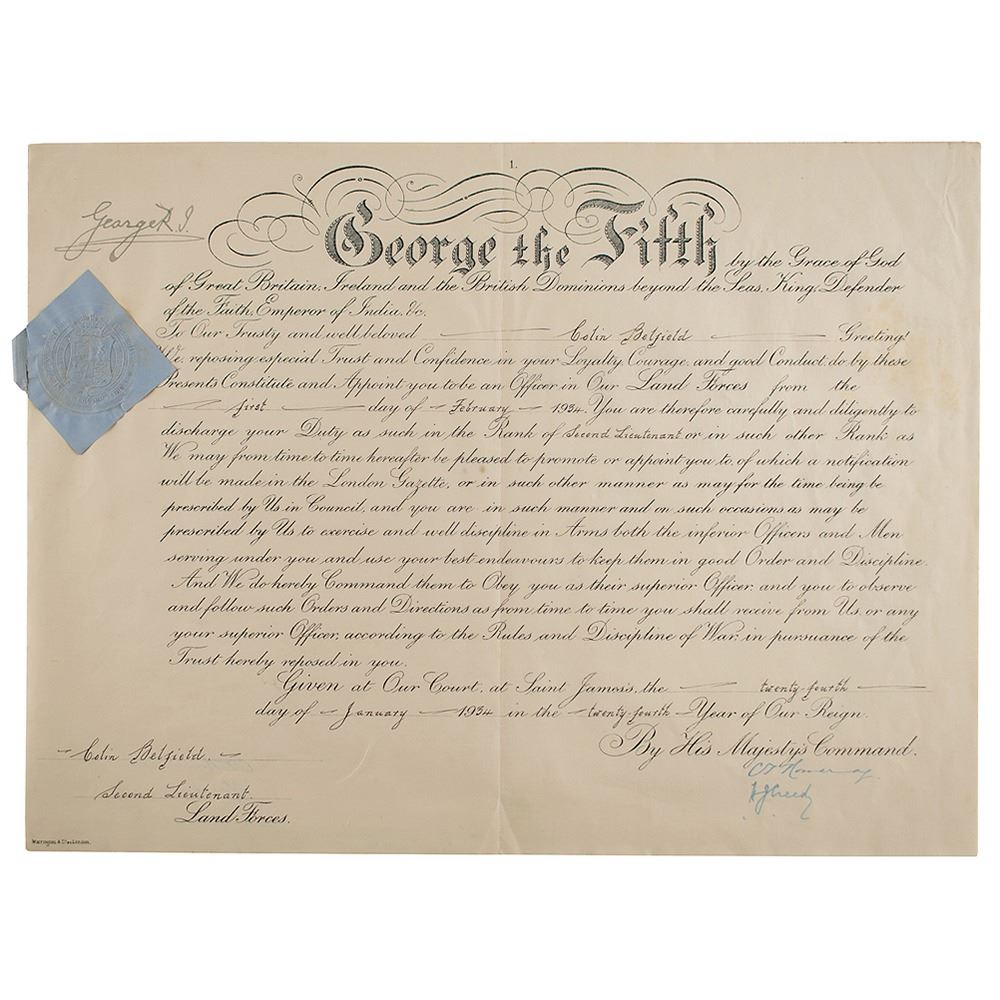 1.
George R.I.
George the Fifth by the Grace of God
of Great Britain, Ireland and the British Dominions beyond the Seas, King, Defender
of the Faith, Emperor of India, &c.
To Our Trusty and well beloved Colin Belfield Greeting!
We, reposing especial Trust and Confidence in your Loyalty, Courage, and good Conduct, do by these
Presents Constitute and Appoint you to be an Officer in Our Land Forces from the
first day of February 1934. You are therefore carefully and diligently to
discharge your Duty as such in the Rank of Second Lieutenant or in such other Rank as
We may from time to time hereafter be pleased to promote or appoint you to, of which a notification
will be made in the London Gazette, or in such other manner as may for the time being be
prescribed by Us in Council, and you are in such manner and on such occasions as may be
prescribed by Us to exercise and well discipline in Arms both the inferior Officers and Men
serving under you and use your best endeavours to keep them in good Order and Discipline.
And We do hereby Command them to Obey you as their superior Officer, and you to observe
and follow such Orders and Directions as from time to time you shall receive from Us, or any
your superior Officer, according to the Rules and Discipline of War, in pursuance of the
Trust hereby reposed in you.
Given at Our Court, at Saint James's, the twenty-fourth
day of January 1934 in the twenty-fourth Year of Our Reign.
By His Majesty's Command.
Colin Belfield.
HJCreedy
Second Lieutenant.
Land Forces.